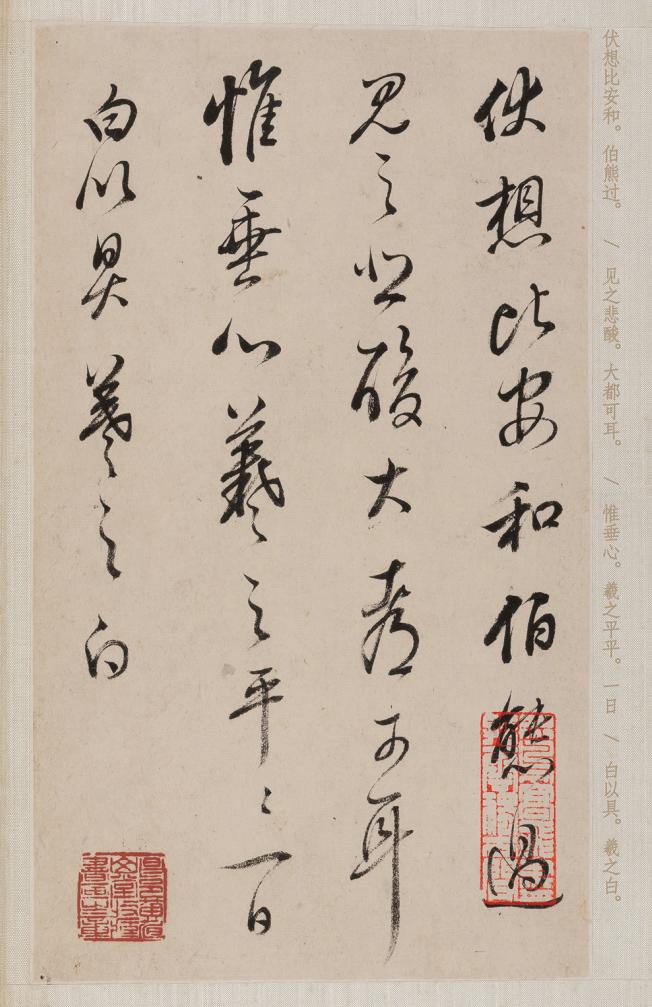 伏想比安和伯熊過
見之悲酸大都可耳
惟垂心羲之平〻一日
白以具羲之白
伏想比安和。伯熊过。 / 见之悲酸。大都可耳。 / 惟垂心。羲之平平。一日 / 白以具。羲之白。